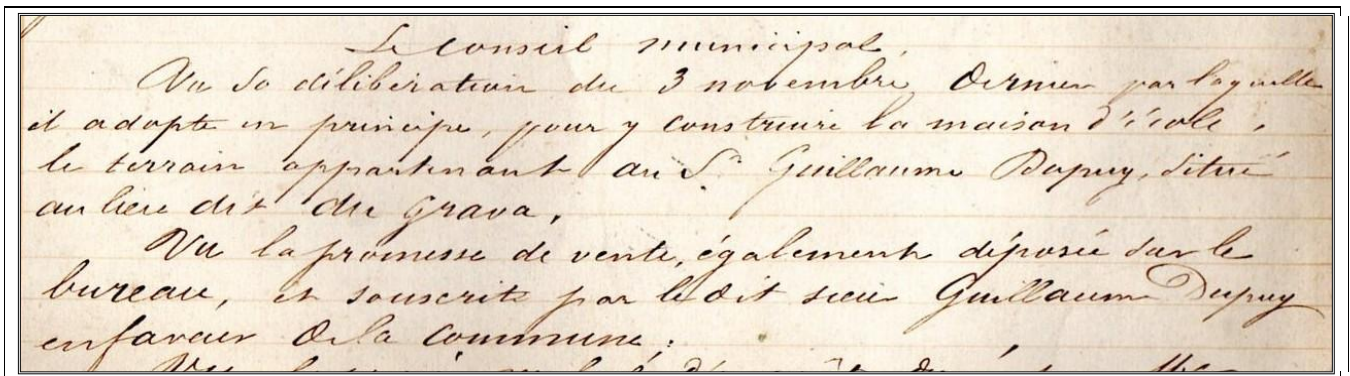 Le Conseil municipal,
Vu sa délibération du 3 novembre dernier par laquelle
il adopte en principe, pour y construire la maison d'école,
le terrain appartenant au Sr Guillaume Dupuy, situé
au lieu dit du Grava.
Vu la promesse de vente, également déposée sur le
bureau, et souscrite par le dit sieur Guillaume Dupuy
en faveur de la commune;